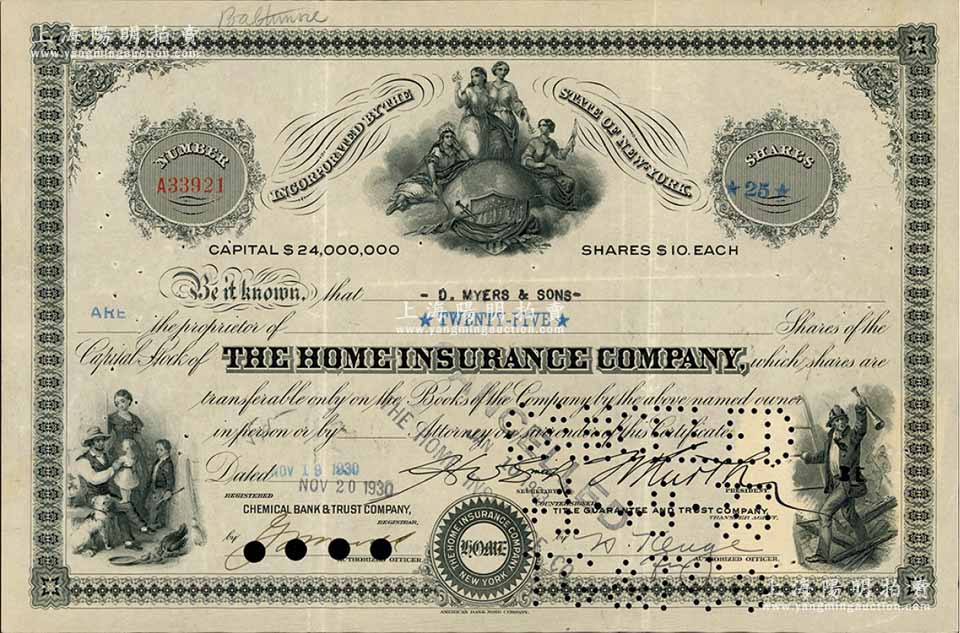 Baltimore
上海陽明拍賣
www.yangmingauction.com
上海陽明拍賣
www.yangmingauction.com
INCORPORATED BY THE STATE OF NEW-YORK.
NUMBER
A33921
SHARES
★25★
CAPITAL $24,000,000
SHARES $10. EACH
Be it known, that - D. MYERS & SONS-
上海陽明拍賣
www.yangmingauction.com
ARE the proprietor of ★TWENTY-FIVE★ Shares of the
Capital Stock of THE HOME INSURANCE COMPANY, which shares are
transferable only on the Books of the Company by the above named owner
in person or by Attorney on surrender of this Certificate.
CANCELLED
THE HOME
Dated NOV 19 1930
NOV 20 1930
SECRETARY
PRESIDENT
REGISTERED
COUNTERSIGNED
CHEMICAL BANK & TRUST COMPANY,
TITLE GUARANTEE AND TRUST COMPANY
REGISTRAR,
TRANSFER AGENT,
by
AUTHORIZED OFFICER
AUTHORIZED OFFICER.
THE HOME INSURANCE COMPANY
HOME
NEW YORK
AMERICAN BANK NOTE COMPANY.
上海陽明拍賣
www.yangmingauction.com